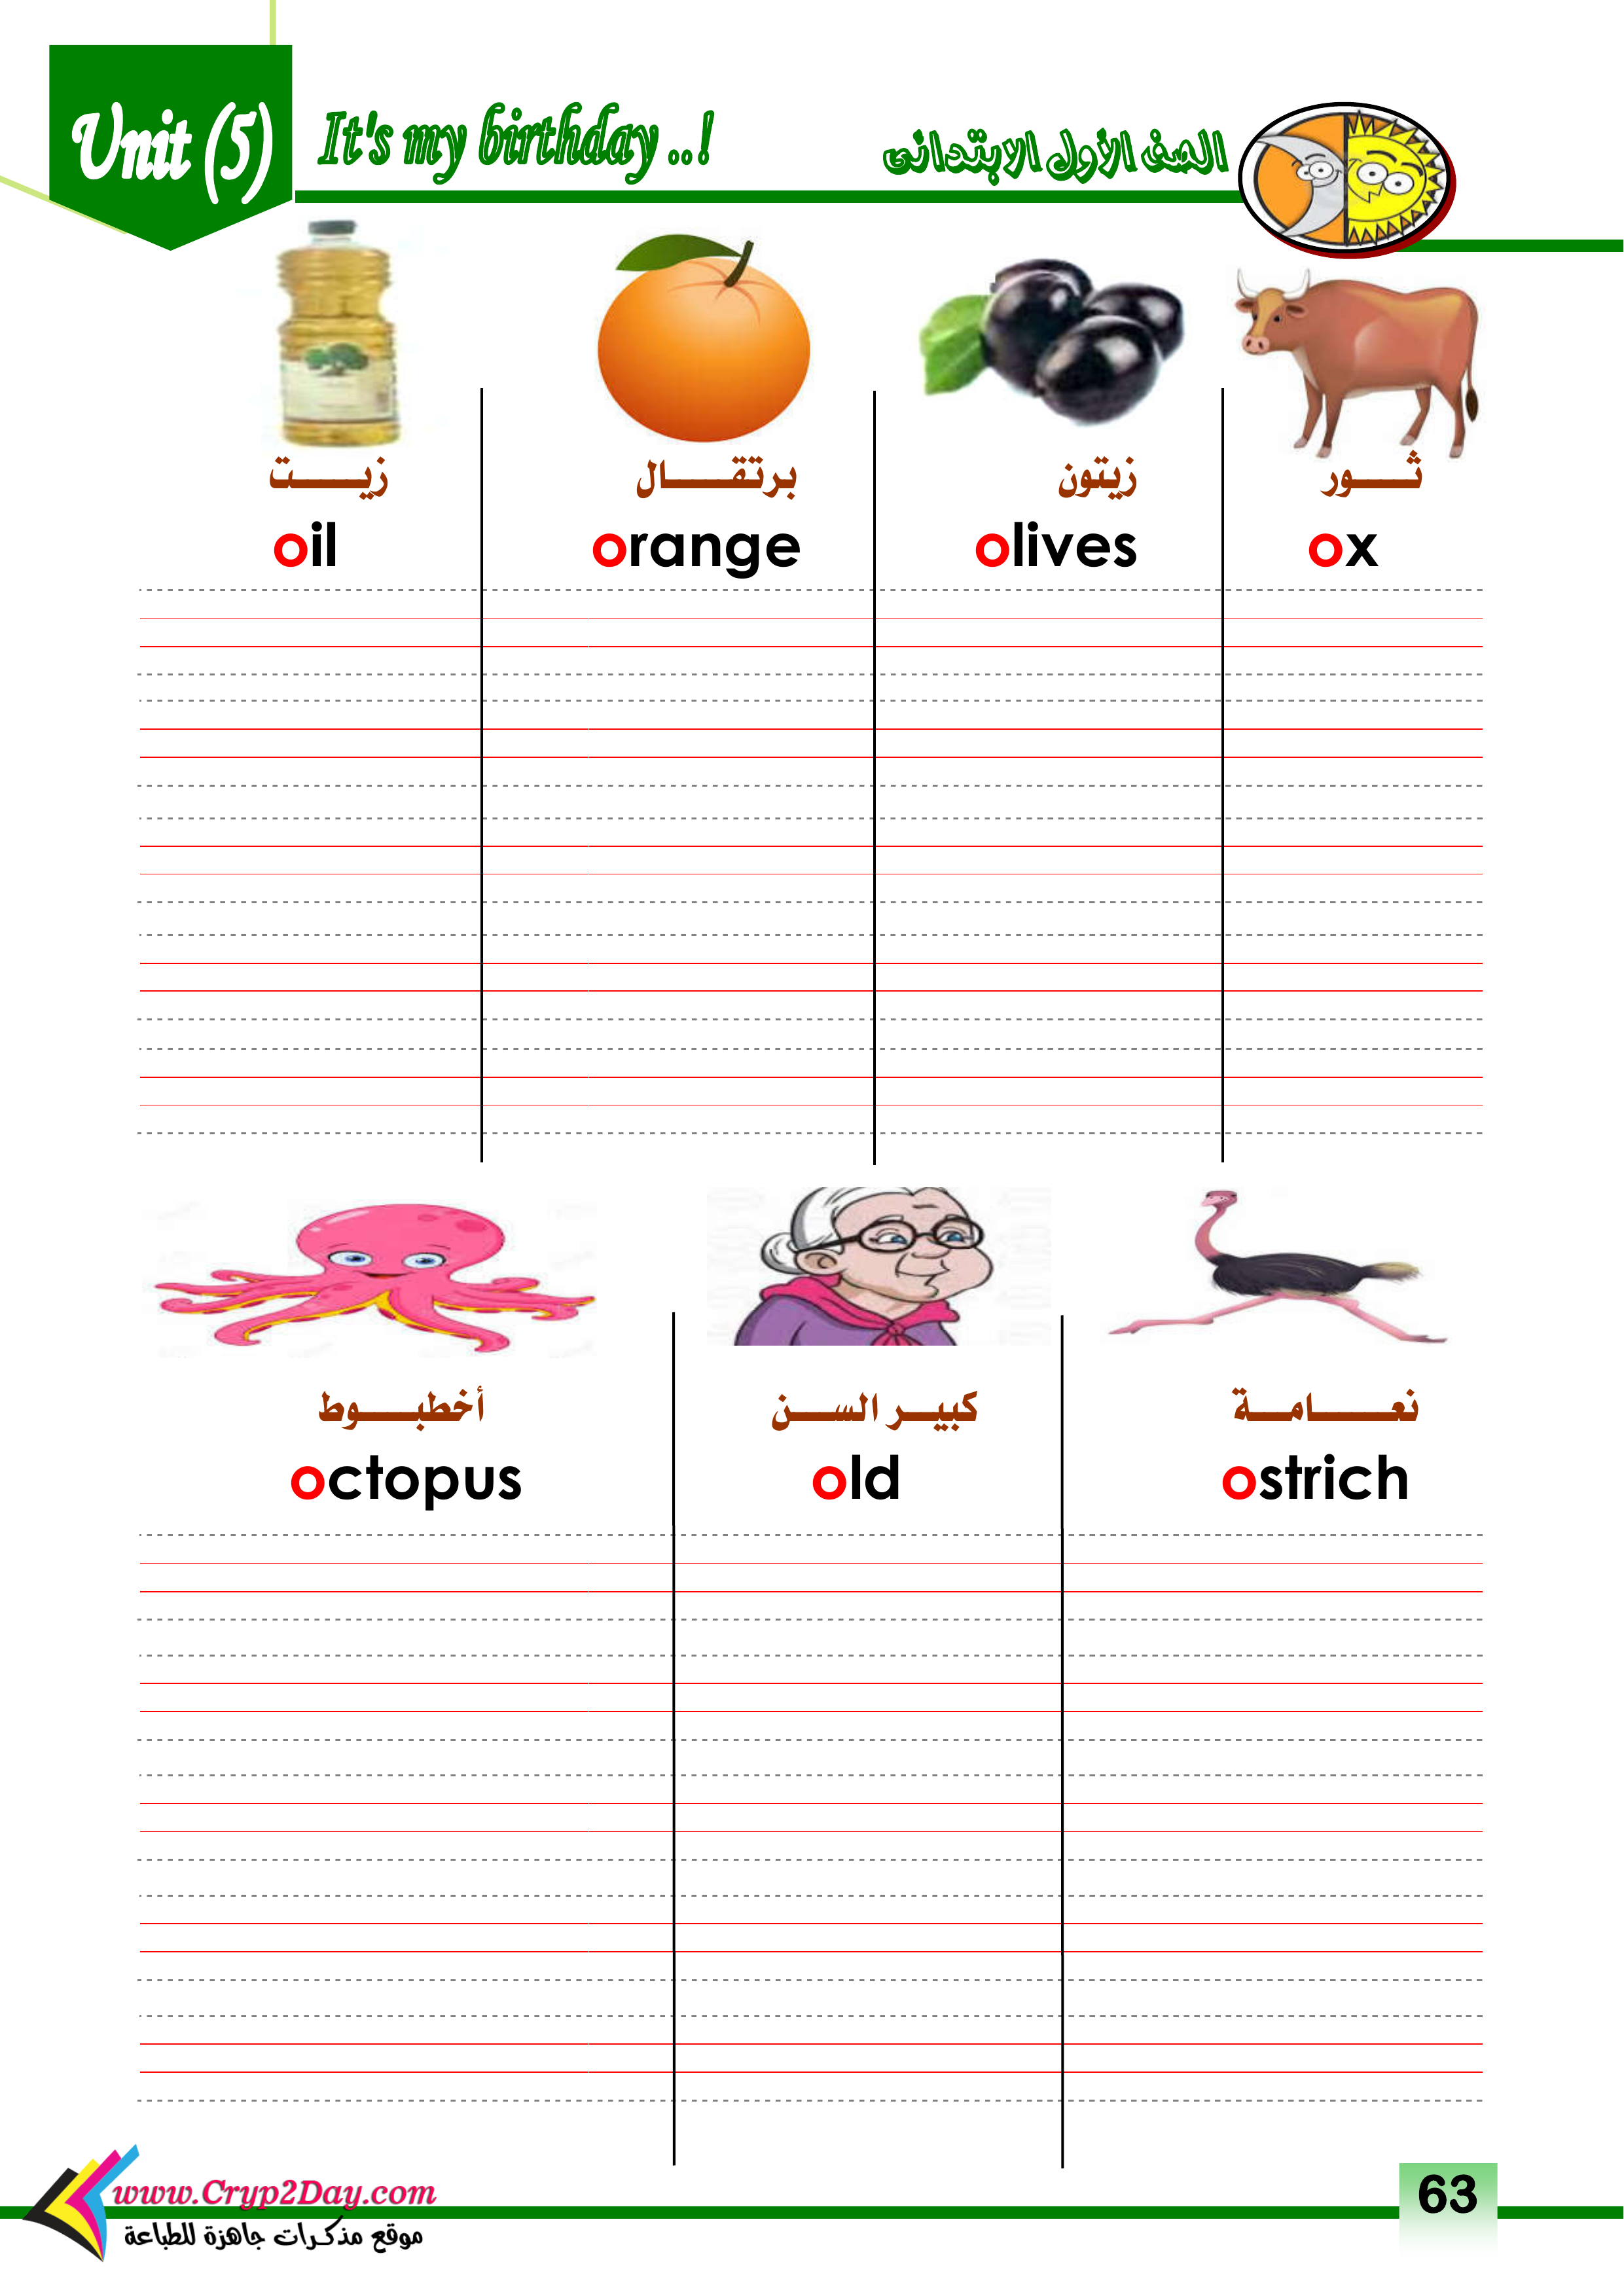 Unit (5) It's my birthday ..! الصف الأول الابتدائى
زيت برتقال زيتون ثور
oil orange olives ox
أخطبوط كبير السن نعامة
octopus old ostrich
www.Cryp2Day.com
موقع مذكرات جاهزة للطباعة
63